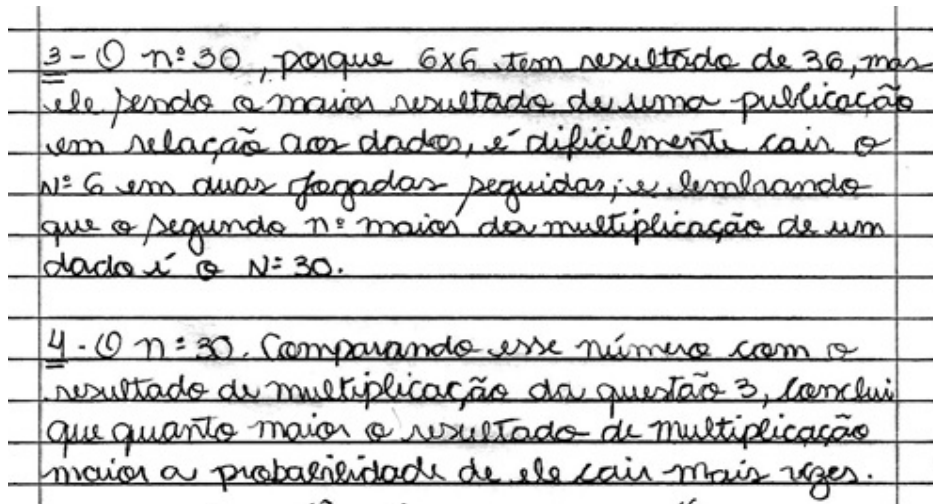 3 - O nº 30, porque 6x6 tem resultado de 36, mas
ele sendo o maior resultado de uma publicação
em relação aos dados, é dificilmente cair o
Nº 6 em duas jogadas seguidas; e lembrando
que o segundo nº maior da multiplicação de um
dado é o Nº 30.
4 - O nº 30. Comparando esse número com o
resultado de multiplicação da questão 3, conclui
que quanto maior o resultado de multiplicação
maior a probabilidade de ele cair mais vezes.